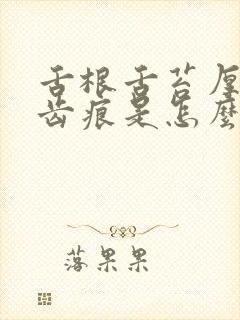 舌根舌苔厚
齿痕是怎麽
落果果